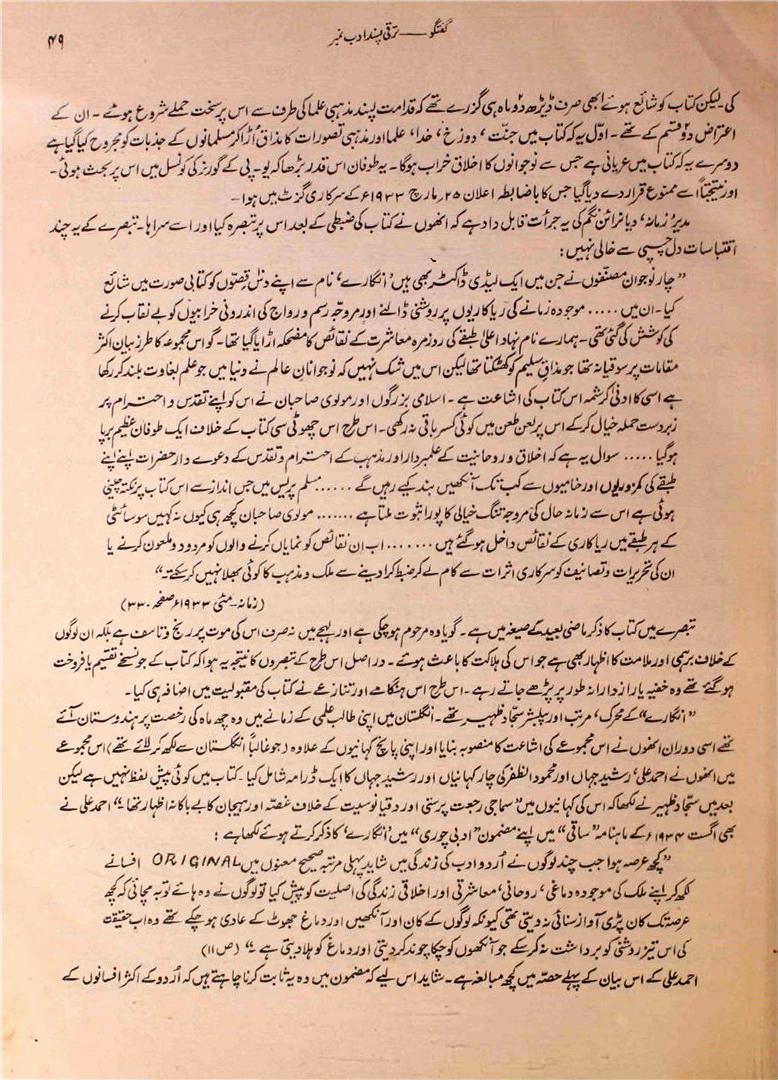 گفتگو — ترقی پسند ادب نمبر
۴۹
کی۔ لیکن کتاب کو شائع ہوئے ابھی صرف ڈیڑھ دو ماہ ہی گزرے تھے کہ قدامت پسند مذہبی علما کی طرف سے اس پر سخت حملے شروع ہوئے۔ ان کے
اعتراض دو قسم کے تھے۔ اوّل یہ کہ کتاب میں جنّت، دوزخ، خدا، علما اور مذہبی تصورات کا مذاق اُڑا کر مسلمانوں کے جذبات کو مجروح کیا گیا ہے
دوسرے یہ کہ کتاب میں عریانی ہے جس سے نوجوانوں کا اخلاق خراب ہوگا۔ یہ طوفان اس قدر بڑھا کہ یو۔پی کے گورنر کی کونسل میں اس پر بحث ہوئی۔
اور نتیجتاً اسے ممنوع قرار دے دیا گیا جس کا باضابطہ اعلان ۲۵؍ مارچ ۱۹۳۳ء کے سرکاری گزٹ میں ہوا۔
مدیر ’زمانہ‘ دیا نرائن نگم کی یہ جرأت قابل داد ہے کہ انھوں نے کتاب کی ضبطی کے بعد اس پر تبصرہ کیا اور اسے سراہا۔ تبصرے کے یہ چند
اقتباسات دل چسپی سے خالی نہیں:
”چار نوجوان مصنّفوں نے جن میں ایک لیڈی ڈاکٹر بھی ہیں ’انگارے‘ نام سے اپنے دس قصّوں کو کتابی صورت میں شائع
کیا۔ ان میں ..... موجودہ زمانے کی ریاکاریوں پر روشنی ڈالنے اور مروّجہ رسم و رواج کی اندرونی خرابیوں کو بے نقاب کرنے
کی کوشش کی گئی تھی۔ ہمارے نام نہاد اعلیٰ طبقے کی روزمرہ معاشرت کے نقائص کا مضحکہ اڑایا گیا تھا۔ گو اس مجموعہ کا طرز بیان اکثر
مقامات پر سوقیانہ تھا جو مذاقِ سلیم کو کھٹکتا تھا لیکن اس میں شک نہیں کہ نوجوانانِ عالم نے دنیا میں جو علم بغاوت بلند کر رکھا
ہے اسی کا ادنیٰ کرشمہ اس کتاب کی اشاعت ہے۔ اسلامی بزرگوں اور مولوی صاحبان نے اس کو اپنے تقدس و احترام پر
زبردست حملہ خیال کر کے اس پر لعن طعن میں کوئی کسر باقی نہ رکھی۔ اس طرح اس چھوٹی سی کتاب کے خلاف ایک طوفان عظیم برپا
ہو گیا ..... سوال یہ ہے کہ اخلاق و روحانیت کے علمبردار اور مذہب کے احترام و تقدس کے دعوے دار حضرات اپنے اپنے
طبقے کی کمزوریوں اور خامیوں سے کب تک آنکھیں بند کیے رہیں گے ...... مسلم پریس میں جس انداز سے اس کتاب پر نکتہ چینی
ہوئی ہے اس سے زمانہ حال کی مروجہ تنگ خیالی کا پورا ثبوت ملتا ہے ....... مولوی صاحبان کچھ ہی کیوں نہ کہیں سوسائٹی
کے ہر طبقے میں ریاکاری کے نقائص داخل ہو گئے ہیں ....... اب ان نقائص کو نمایاں کرنے والوں کو مردود و ملعون کرنے یا
ان کی تحریرات و تصانیف کو سرکاری اثرات سے کام لے کر ضبط کرا دینے سے ملک و مذہب کا کوئی بھلا نہیں کر سکتے۔“
(زمانہ۔ مئی ۱۹۳۳ء صفحہ ۳۳۰)
تبصرے میں کتاب کا ذکر ماضی بعید کے صیغہ میں ہے۔ گویا وہ مرحوم ہو چکی ہے اور لہجے میں نہ صرف اس کی موت پر رنج و تاسف ہے بلکہ ان لوگوں
کے خلاف برہمی اور ملامت کا اظہار بھی ہے جو اس کی ہلاکت کا باعث ہوئے۔ در اصل اس طرح کے تبصروں کا نتیجہ یہ ہوا کہ کتاب کے جو نسخے تقسیم یا فروخت
ہو گئے تھے وہ خفیہ یا رازدارانہ طور پر پڑھے جاتے رہے۔ اس طرح اس ہنگامے اور تنازعے نے کتاب کی مقبولیت میں اضافہ ہی کیا۔
”انگارے“ کے محرک، مرتب اور پبلیشر سجّاد ظہیر تھے۔ انگلستان میں اپنی طالب علمی کے زمانے میں وہ چھ ماہ کی رخصت پر ہندوستان آئے
تھے اسی دوران انھوں نے اس مجموعے کی اشاعت کا منصوبہ بنایا اور اپنی پانچ کہانیوں کے علاوہ (جو غالباً انگلستان سے لکھ کر لائے تھے) اس مجموعے
میں انھوں نے احمد علی، رشید جہاں اور محمود الظفر کی چار کہانیاں اور رشید جہاں کا ایک ڈرامہ شامل کیا۔ کتاب میں کوئی پیش لفظ نہیں ہے لیکن
بعد میں سجّاد ظہیر نے لکھا کہ اس کی کہانیوں میں ”سماجی رجعت پرستی اور دقیانوسیت کے خلاف غصّہ اور ہیجان کا بے باکانہ اظہار تھا۔“ احمد علی نے
بھی اگست ۱۹۳۴ء کے ماہنامہ ”ساقی“ میں اپنے مضمون ”ادبی چوری“ میں ’انگارے‘ کا ذکر کرتے ہوئے لکھا ہے:
”کچھ عرصہ ہوا جب چند لوگوں نے اُردو ادب کی زندگی میں شاید پہلی مرتبہ صحیح معنوں میں ORIGINAL افسانے
لکھ کر اپنے ملک کی موجودہ دماغی، روحانی، معاشرتی اور اخلاقی زندگی کی اصلیت کو پیش کیا تو لوگوں نے وہ ہائے توبہ مچائی کہ کچھ
عرصہ تک کان پڑی آواز سنائی نہ دیتی تھی کیونکہ لوگوں کے کان اور آنکھیں اور دماغ جھوٹ کے عادی ہو چکے تھے وہ اب حقیقت
کی اس تیز روشنی کو برداشت نہ کر سکے جو آنکھوں کو چکاچوند کر دیتی اور دماغ کو ہلا دیتی ہے۔“ (ص ۱۱)
احمد علی کے اس بیان کے پہلے حصّہ میں کچھ مبالغہ ہے۔ شاید اس لیے کہ مضمون میں وہ یہ ثابت کرنا چاہتے ہیں کہ اُردو کے اکثر افسانوں کے